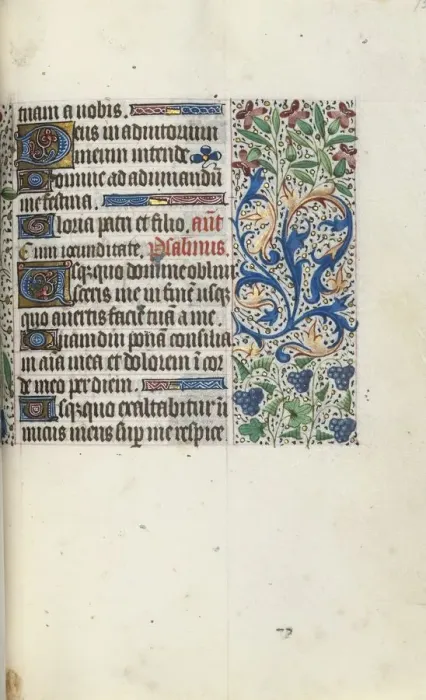 tuam a nobis.
Deus in adiutorium
meum intende
Domine ad adiuuandū
me festina.
Gloria patri et filio. añt
Cum iocunditate. Psalmus.
Usq̄quo domine obliui
sceris me in finē usq̄
quo auertis faciē tuā a me.
Quamdiu ponā consilia
in aīa mea et dolorem ī cor
de meo per diem.
Usq̄quo exaltabitur ī
micus meus sup̄ me respice